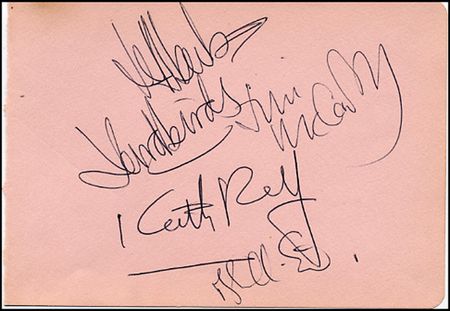 Jeff Beck
Yardbirds Jim
McCarty
Keith Relf